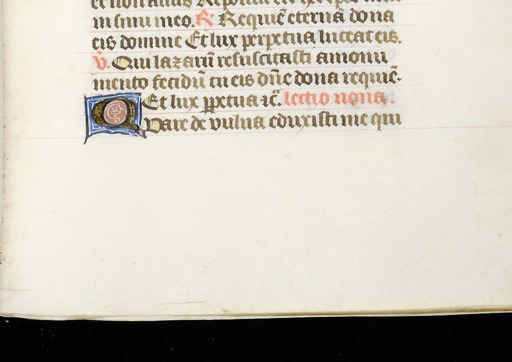 in sinu meo. R Requiē eterna dona
eis domine Et lux perpetua luceat eis.
V. Qui lazarū resuscitasti a monu
mento fetidū tu eis dn̄e dona requiē
Et lux ꝑpetua ⁊c̄. lectio nona.
Quare de vulua eduxisti me qui